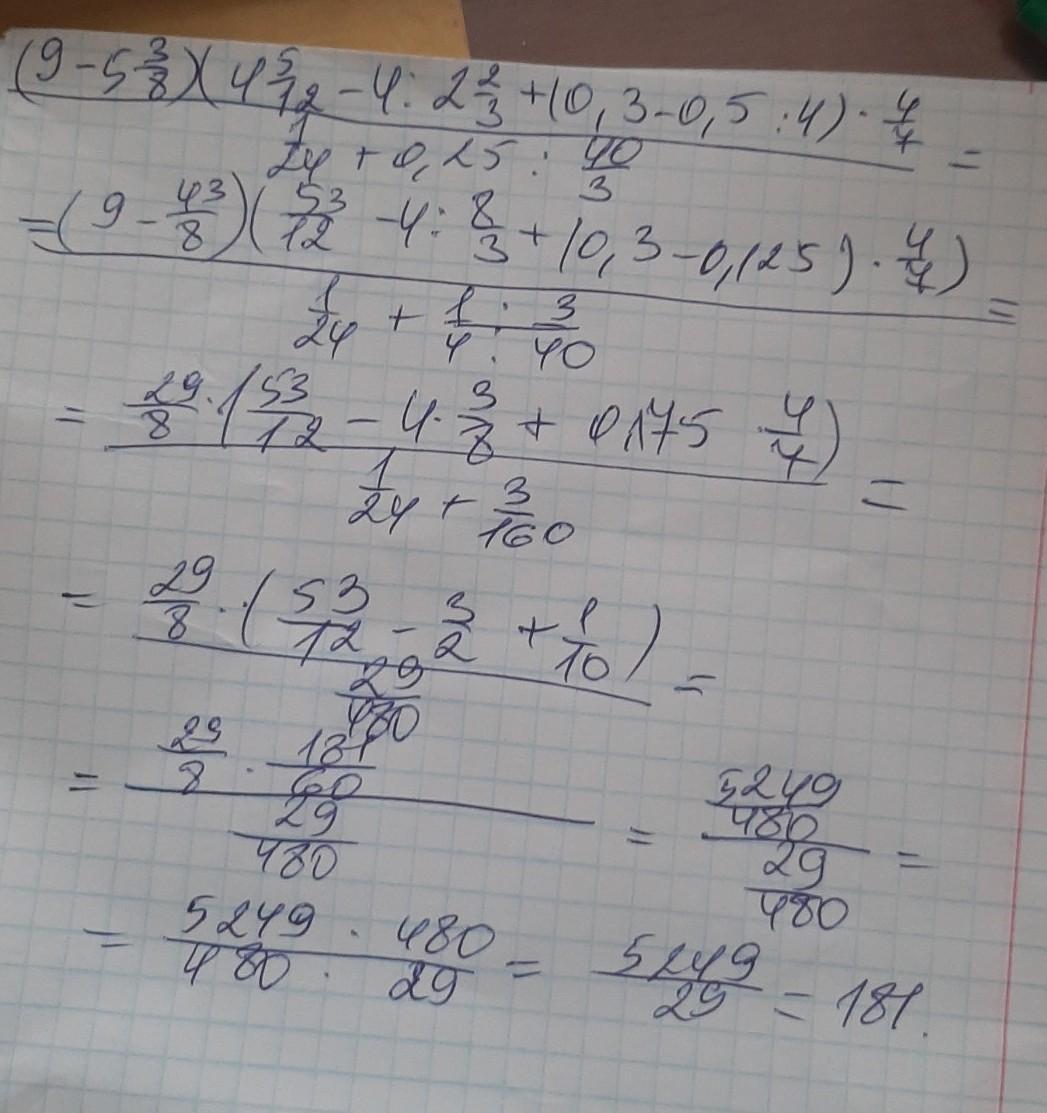 (9 - 5 3/8)(4 5/12 - 4 : 2 2/3 + (0,3 - 0,5 : 4) · 4/7
1/24 + 0,25 : 40/3 =
= (9 - 43/8)(53/12 - 4 : 8/3 + (0,3 - 0,125) · 4/7)
1/24 + 1/4 : 3/40 =
= 29/8 · (53/12 - 4 · 3/8 + 0,175 · 4/7)
1/24 + 3/160 =
= 29/8 · (53/12 - 3/2 + 1/10)
29/480 =
= 29/8 · 181/60
29/480 = 5249/480
29/480 =
= 5249 · 480
480 · 29 = 5249/29 = 181.